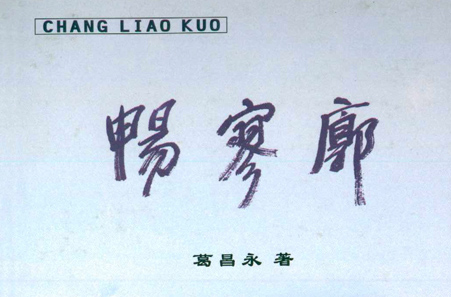 CHANG LIAO KUO
暢寥廓
葛昌永 著